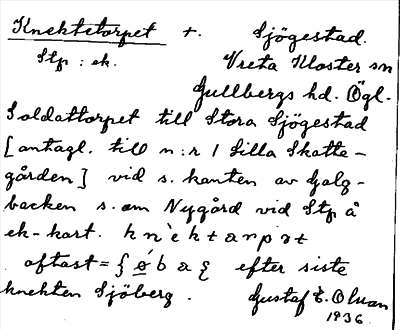 Knektetorpet t. Sjögestad.
Stp : ek. Vreta Kloster sn
Gullbergs hd. Ögl.
Soldattorpet till Stora Sjögestad
[antagl. till n:r 1 Lilla Skatte-
gården] vid s. kanten av Galg-
backen s. om Nygård vid Stp å
ek-kart. knektarpət
oftast = efter siste
knekten Sjöberg. Gustaf E. Olsson
1936.